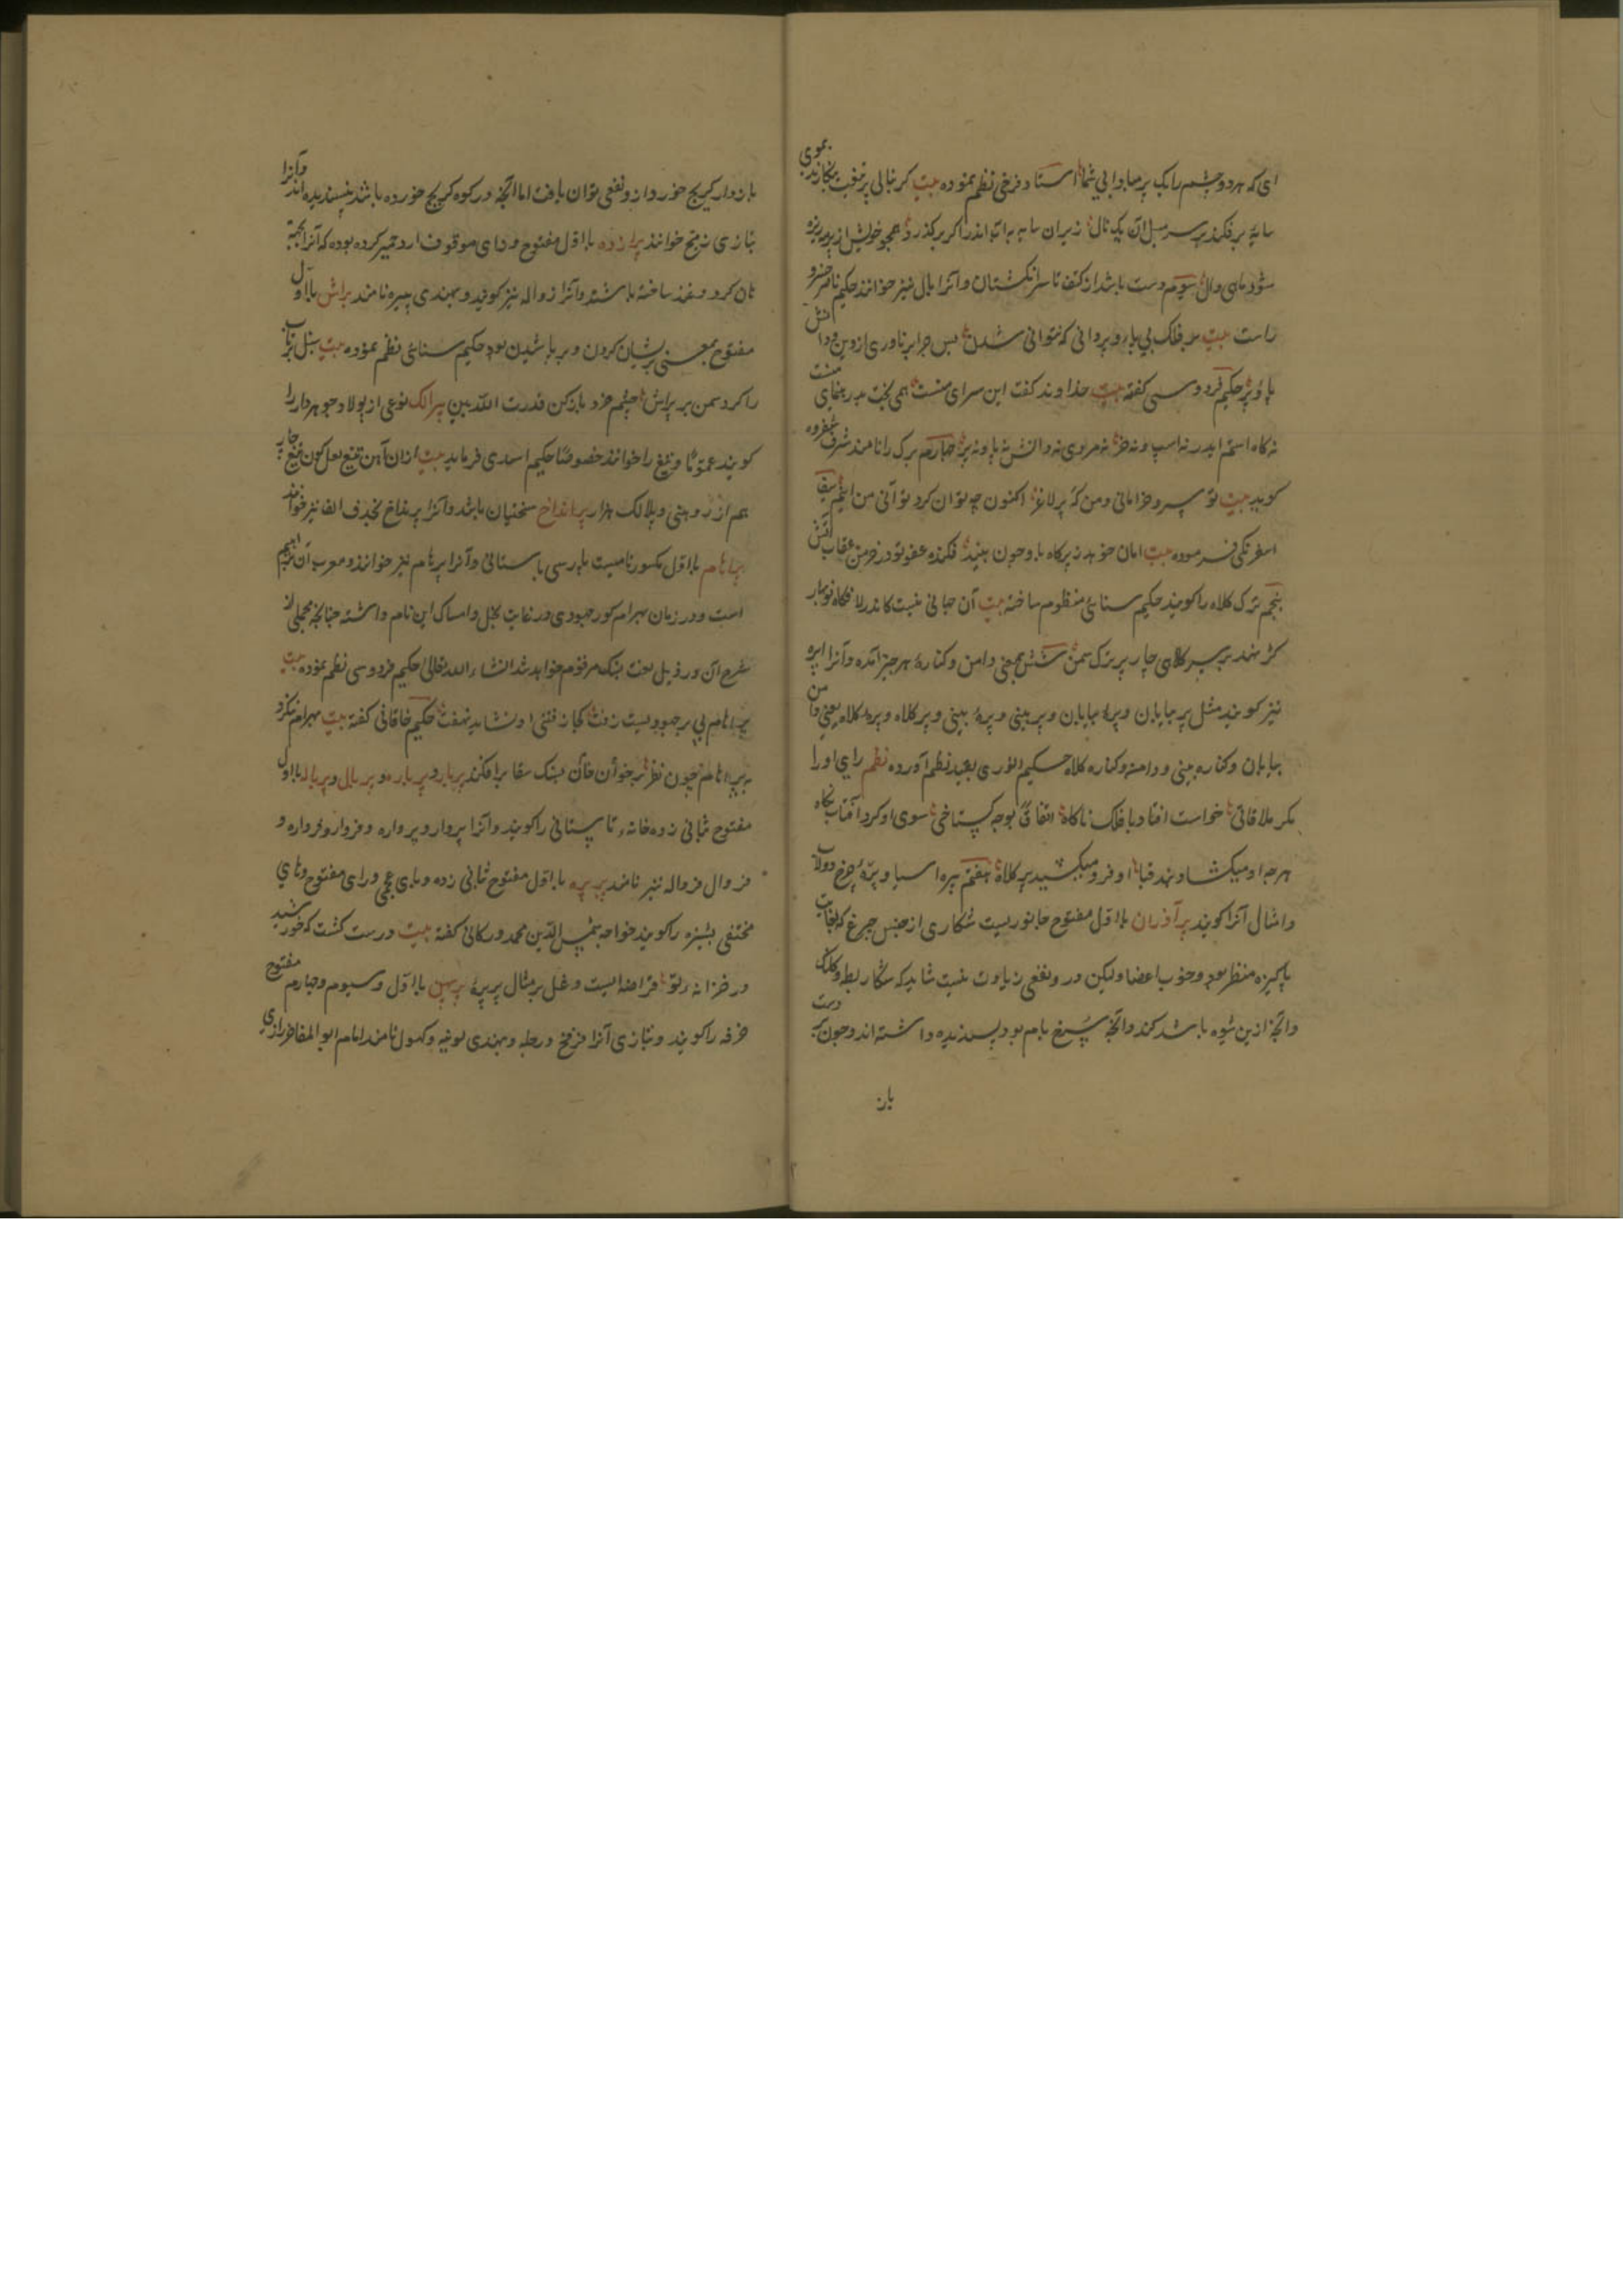 ای که هر دو چشم را یک پر میا و ابی شما استاد فرخی نظم نموده بیت کر نیالی پر تیغت بنگارند بموی
سایه بر فکند پر سر سیل آن یک نال زیر آن سایه به اندر اکر بر کذرد همجو خویش از پر ریزه
شود ماهی وال سوم دست باشد از کتف تا سر انکشتان و آنرا بال نیز خوانند حکیم ناصر خسرو
راست بیت بر فلک بی پا و پر دانی که نتوانی شدن پس چرا بر ناوری از دین و دانش
پا و پر حکیم فردوسی کفته بیت خداوند کفت این سرای منست همی بخت بد رهنمای منست
نه کاه استم ایدر نه اسپ و نه خر نه مروی نه دانش نه پا و نه پر چهارم برک را نامند شرف شفروه
کوید بیت تو سرو خرامانی و من که پر لاغر اکنون چه توان کرد تو آنی من اینم سیف
اسفرنکی فرموده بیت امان خوهد ز پر کاه باد چون بیند فکنده عفو تو در خرمن عقاب آتش
پنجم ترک کلاه را کویند حکیم سنائی منظوم ساخته بیت آن جهانی نیست کاندر لافکاه نوبهار
کژ نهد بر سر کلاهی چار پر ترک سمن ششم بمعنی دامن و کناره هر چیز آمده و آنرا پره
نیز کویند مثل پر بیابان و پره بیابان و پر بینی و پره بینی و پر کلاه و پره کلاه یعنی دامن
بیابان و کناره بینی و دامنه و کناره کلاه حکیم انوری بقید نظم آورده نظم رای او را
مکر ملاقاتی خواست افتاد با فلک ناکاه اتفاقا بوجه کستاخی سوی او کرد آفتاب نکاه
هر چه او میکشاد بند قبا او فرو میکشید پر کلاه هفتم پره آسیا و پره چرخ دولاب
و امثال آنرا کویند پر آذران با اول مفتوح جانوریست شکاری از جنس چرغ که بغایت
پاکیزه منظر بود و خوب اعضا ولیکن در و نفعی زیادت نیست شاید که شکار بط و کلنک
و آنچه ازین شیوه باشد کند و آنچه سیغ بام بود پسندیده داشته اند و چون بر دست
باز
باز دار کریج خورد از و نفعی توان یافت اما آنچه در کوه کریج خورده باشد نپسندیده اند و آنرا
بتازی زمج خوانند پرازده با اول مفتوح و دای موقوف آرد خمیر کرده بوده که آنرا بجهة
نان کرد و غند ساخته باشند و آنرا زواله نیز کویند و بهندی پیره نامند پراش با اول
مفتوح بمعنی پریشان کردن و پر پاشیدن بود حکیم سنائی نظم نموده بیت سنبل پرتاب
را کرد سمن بر پراش چشم خرد باز کن قدرت الله ببین پرالک نوعی از پولاد جوهردار را
کویند عموما و تیغ را خوانند خصوصا حکیم اسدی فرماید بیت از ان آهن تیغ لعل کون تیغ چار
هم از روهنی و پلالک هزار پرانداخ سختیان باشد و آنرا پرنداخ بحذف الف نیز خوانند
براهام با اول مکسور نامیست بپارسی باستانی و آنرا برهام نیز خوانند و معرب آن ابراهیم
است و در زمان بهرام کور جهودی در غایت بخل و امساک این نام داشته چنانچه مجملی از
شرح آن در ذیل لغت لنبک مرقوم خواهد شد انشاء الله تعالی حکیم فردوسی نظم نموده بیت
براهام بی بر جهودیست زفت کجا زفتی او نشاید نهفت حکیم خاقانی کفته بیت بهرام ننکرد
به براهام چون نظر بر خوان و خان لنبک سقا برافکند پربار و پرباره و پربال و پرباله با اول
مفتوح بثانی زده خانه تابستانی را کویند و آنرا پروار و پرواره و فروار و فرواره و
فروال فرواله نیز نامند پرپره با اول مفتوح ثانی زده و بای عجمی و رای مفتوح و های
مختفی پشیزه را کویند خواجه شمس الدین محمد درکانی کفته بیت درست کشت که خورشید
در خزانه تو قراضه ایست دغل بر مثال پرپره پرپهن با اول و سیوم و چهارم مفتوح
خرفه را کویند و بتازی آنرا فرفخ و رجله و بهندی لونیه و کلول نامند امام ابوالمفاخر رازی